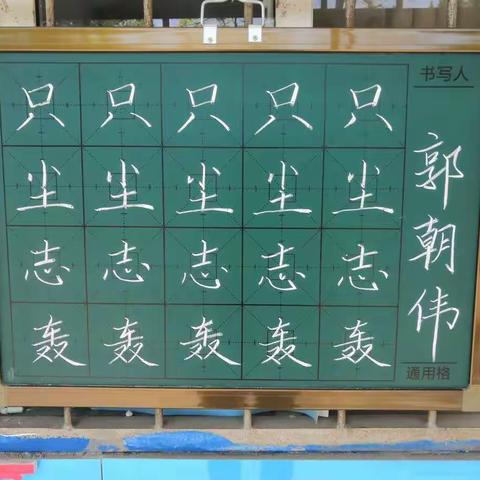 只只只只只
尘尘尘尘尘
志志志志志
轰轰轰轰轰
书写人
郭朝伟
通用格